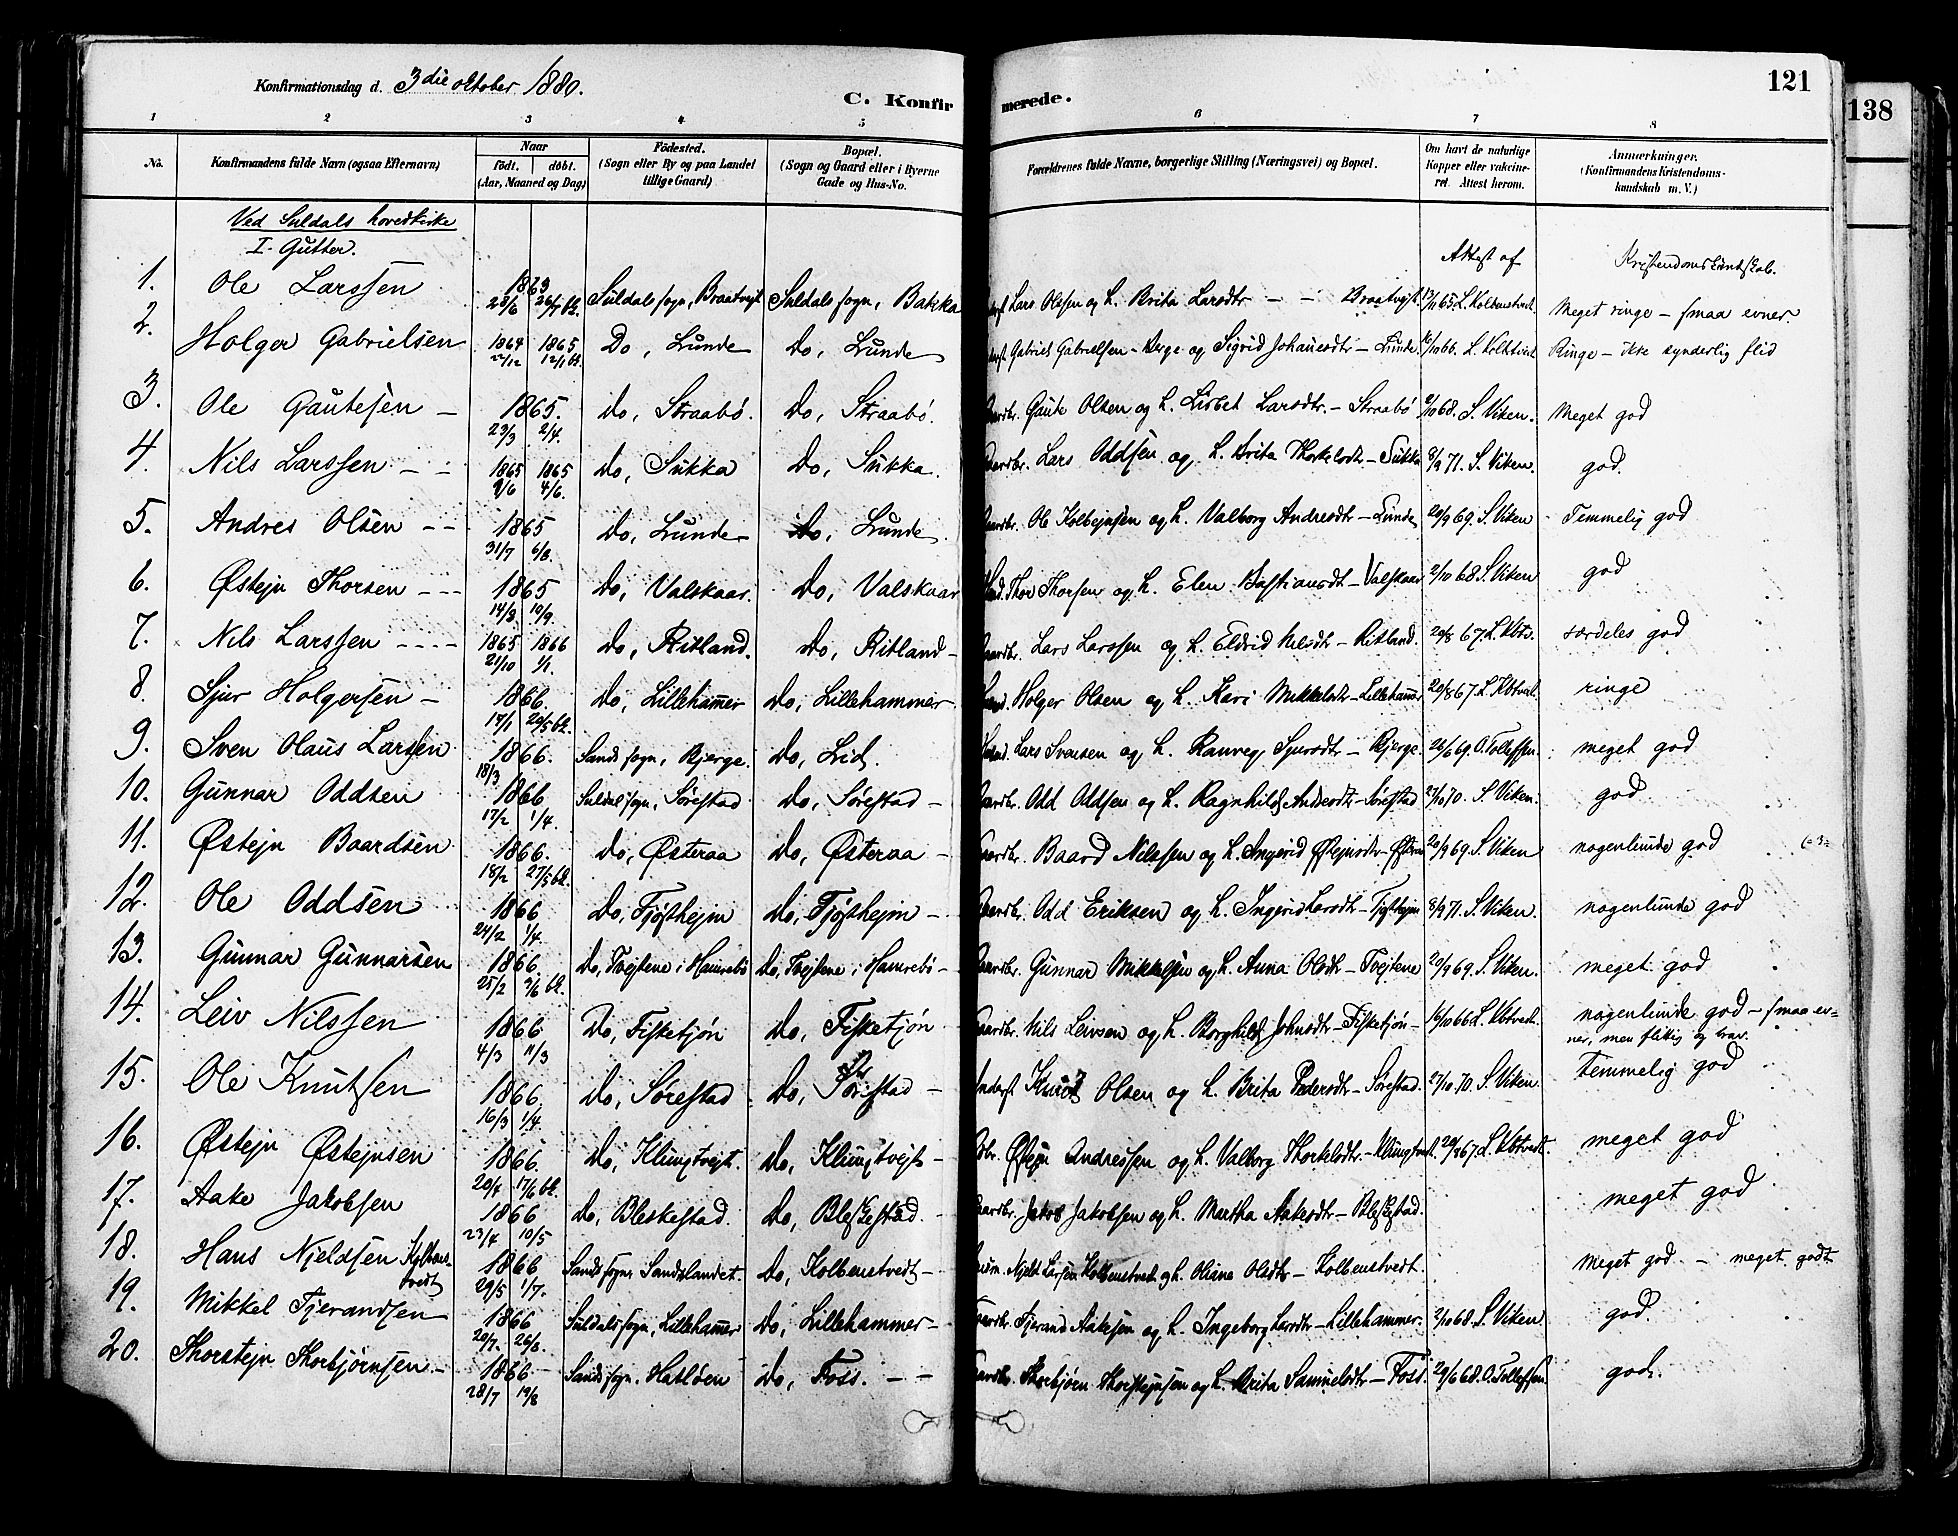 Konfirmationsdag d. 3die oktober 1880.
C. Konfirmerede.
121
138
1 2 3 4 5 6 7 8
No. Konfirmandens fulde Navn (ogsaa Efternavn) Naar født. døbt. (Aar, Maaned og Dag) Fødested. (Sogn eller By og paa Landet tillige Gaard) Bopæl. (Sogn og Gaard eller i Byerne Gade og Hus-No. Forældrenes fulde Navne, borgerlige Stilling (Næringsvei) og Bopæl. Om havt de naturlige Kopper eller vakcineret. Attest herom. Anmærkninger. (Konfirmandens Kristendomskundskab m. V.)
Ved Suldals hovedkirke
I. Gutter.
Attest af Kristendomskundskab.
1. Ole Larssen 1863 28/6 26/7 bk. Suldals sogn, Braatvejt Suldals sogn, Bakka Lars Olesen og h. Brita Larsdtr – – Braatvejt. 13/11 65. L. Kolbenstvedt. Meget ringe – smaa evner.
2. Holger Gabrielsen 1864 27/12 1865 12/1 bk. Do, Lunde Do, Lunde Gabriel Gabrielsen – Berge og Sigrid Johanesdtr – Lunde. 16/10 66. L. Kolbtvedt Ringe – ikke synderlig flid
3. Ole Gautesen – 1865. 23/3 2/4. do, Straabø. Do, Straabø. Gaardbr. Gaute Olsen og h. Lisbet Larsdtr. – Straabø 2/10 68. S. Viken. Meget god
4. Nils Larssen – – 1865 9/6 1865 4/6. Do, Sukka Do, Sukka. Gaardbr. Lars Oddsen og h. Brita Thorkelsdtr – Sukka 8/9 71. S. Viken. god.
5. Andres Olsen – – 1865 31/7 6/8. Do, Lunde – Do, Lunde. Gaardbr. Ole Kolbejnsen og h. Valborg Andresdtr – Lunde 20/9 69. S. Viken Temmelig god
6. Østejn Thorsen – – – 1865 14/8. 10/9. Do, Valskaar. Do, Valskaar Thor Thorsen og h. Elen Bastiansdt – Valskaar 2/10 68 S. Viken god
7. Nils Larssen – – – – 1865 21/10 1866 1/1. Do, Ritland. Do, Ritland – Gaardbr. Lars Larssen og h. Eldrid Nilsdtr – Ritland. 20/8 67. L. Kbtv. særdeles god
8. Sjur Holgersen – 1866. 17/1 20/5 bk. Do, Lillehammer Do, Lillehammer Holger Olsen og h. Kari Mikkelsdtr – Lillehammer 20/8 67. L. Kbtvedt. ringe
9. Sven Olaus Larssen 1866. 18/3 Sands sogn, Bjerge. Do, Lid. Lars Svensen og h. Ranveg Sjursdtr – Bjerge. 26/6 69. O. Tollefsen. meget god
10. Gunnar Oddsen 1866 17/2 1/4. Suldals sogn, Sørestad Do, Sørestad – Gaardbr. Odd Oddsen og h. Ragnhild Andersdtr – Sørestad 27/10 70. S. Viken. god
11. Østejn Baardsen 1866. 18/2 27/5 bk. Do, Østeraa Do, Østeraa – Gaardbr. Baard Nilssen og h. Ingerid Østejnsdtr – Østeraa 20/9 69. S. Viken nogenlunde god
12. Ole Oddsen 1866 24/2 1/4. Do, Fjøsthejm Do, Fjøsthejm – Gaardbr. Odd Eriksen og h. Ingerid Larsdtr – Fjøsthejm 8/9 71. S. Viken. nogenlunde god
13. Gunnar Gunnarsen 1866. 25/2 3/6 bk. Do, Tvejtene i Hamrebø Do, Tvejtene i Hamrebø – Gaardbr. Gunnar Mikkelsen og h. Anna Olsdtr – Tvejtene 20/9 69. S. Viken. meget god
14. Leiv Nilssen 1866 4/3 11/3 Do, Fisketjøn Do, Fisketjøn Gaardbr. Nils Leivsen og h. Borghild Johnsdtr – Fisketjøn – 16/10 66 L. Kbtvedt. nogenlunde god – smaa ev-
ner, men flittig og brav.
15. Ole Knutsen 1866. 16/3 1/4. Do, Sørestad Do, Sørestad – Inderst Knut Olsen og h. Brita Pedersdtr – Sørestad. 27/10 70 S. Viken. Temmelig god
16. Østejn Østejnsen 1866. 20/4 17/6 bk. Do, Klungtvejt. Do, Klungtvejt – Østejn Andressen og h. Valborg Thorkelsdtr – Klungtvedt. 20/8 67. L. Kbtvedt. meget god
17. Aake Jakobsen 1866 23/4 10/5 Do, Bleskestad. Do, Bleskestad. Gaardbr. Jakob Jakobsen og h. Martha Aakesdtr – Bleskestad. meget god
18. Hans Njeldsen Kolbens-
tvedt 1866 29/5 1/7. Sands sogn Sandslandet. Do, Kolbenstvedt – Njeld Larsen Kolbenstvedt og h. Oliane Olsdtr – Kolbenstvedt. meget god – meget godt
19. Mikkel Tjerandsen 1866 20/7. 26/8. Suldals sogn, Lillehammer Do, Lillehammer – Gaardbr. Tjerand Aakesen og h. Ingeborg Larsdtr – Lillehammer. 2/10 68. S. Viken. god.
20. Thorstejn Thorbjørnsen – 1866 – 28/7 19/8 Sands sogn. Hatlöen Do, Foss. – – Gaardbr. Thorbjørn Thorstejnsen og h. Brita Samuelsdtr – Foss. 29/6 68. O. Tollefsen. god.